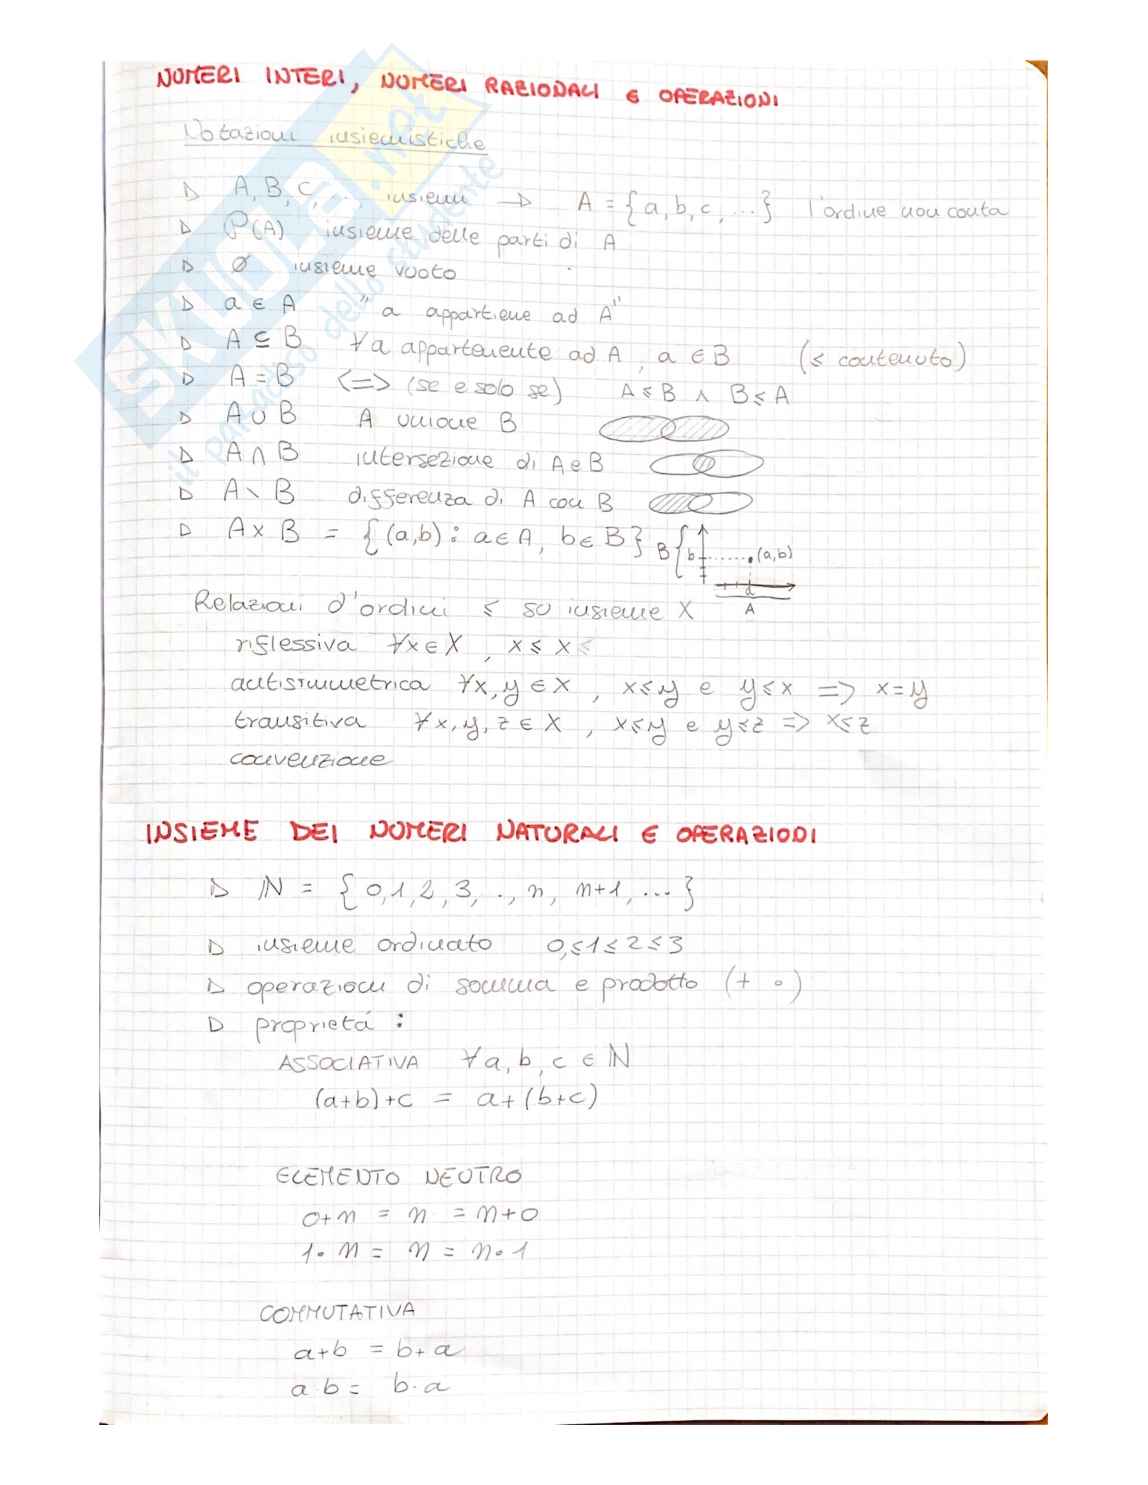 NUMERI INTERI, NUMERI RAZIONALI E OPERAZIONI
Notazioni insiemistiche
▷ A, B, C, ... insiemi → A = {a, b, c, ...} l'ordine non conta
▷ P(A) insieme delle parti di A
▷ ∅ insieme vuoto
▷ a ∈ A "a appartiene ad A"
▷ A ⊆ B ∀a appartenente ad A, a ∈ B (≤ contenuto)
▷ A = B <=> (se e solo se) A ≤ B ∧ B ≤ A
▷ A ∪ B A unione B
▷ A ∩ B intersezione di A e B
▷ A \ B differenza di A con B
▷ A x B = {(a,b) : a ∈ A, b ∈ B} B { b (a,b)
a
A
Relazioni d'ordini ≤ su insieme X
riflessiva ∀x ∈ X, x ≤ x ≤
antisimmetrica ∀x, y ∈ X, x ≤ y e y ≤ x => x = y
transitiva ∀x, y, z ∈ X, x ≤ y e y ≤ z => x ≤ z
convenzione
INSIEME DEI NUMERI NATURALI E OPERAZIONI
▷ ℕ = {0, 1, 2, 3, ., n, n+1, ...}
▷ insieme ordinato 0, ≤ 1 ≤ 2 ≤ 3
▷ operazioni di somma e prodotto (+ ∘)
▷ proprietá :
ASSOCIATIVA ∀a, b, c ∈ ℕ
(a+b)+c = a+(b+c)
ELEMENTO NEUTRO
0+n = n = n+0
1 · n = n = n · 1
COMMUTATIVA
a+b = b+a
a b = b · a
SKUOLA.net
il paradiso dello studente